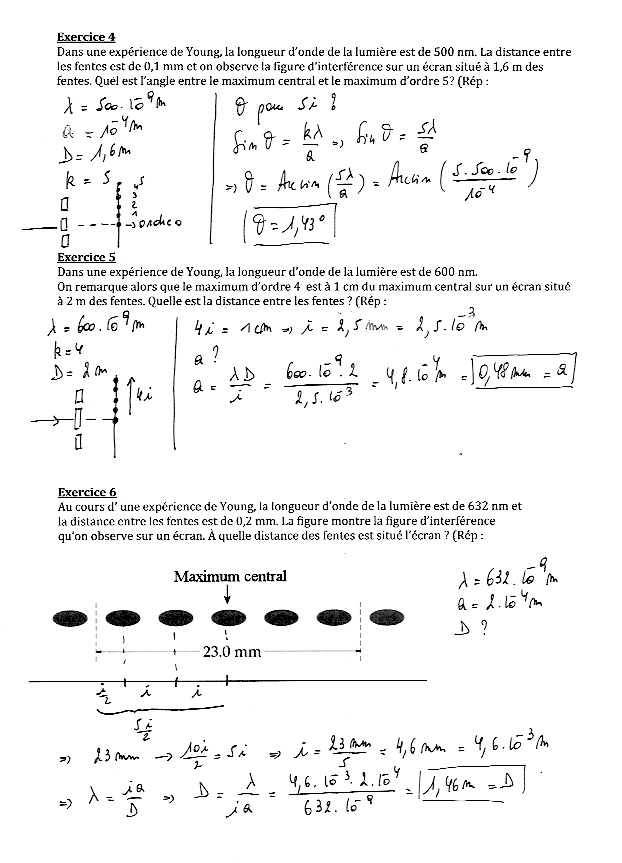 Exercice 4
Dans une expérience de Young, la longueur d'onde de la lumière est de 500 nm. La distance entre
les fentes est de 0,1 mm et on observe la figure d'interférence sur un écran situé à 1,6 m des
fentes. Quel est l'angle entre le maximum central et le maximum d'ordre 5? (Rép :
λ = 500.10⁻⁹ m
a = 10⁻⁴ m
D = 1,6 m
k = 5
5
4
3
2
1
→ ordre 0
θ pour 5i ?
Sin θ = kλ/a ⇒ Sin θ = 5λ/a
⇒ θ = Arcsin (5λ/a) = Arcsin (5.500.10⁻⁹/10⁻⁴)
θ = 1,43°
Exercice 5
Dans une expérience de Young, la longueur d'onde de la lumière est de 600 nm.
On remarque alors que le maximum d'ordre 4 est à 1 cm du maximum central sur un écran situé
à 2 m des fentes. Quelle est la distance entre les fentes ? (Rép :
λ = 600.10⁻⁹ m
k = 4
D = 2 m
4i
4i = 1 cm ⇒ i = 2,5 mm = 2,5.10⁻³ m
a ?
a = λD/i = 600.10⁻⁹.2/2,5.10⁻³ = 4,8.10⁻⁴ m = 0,48 mm = a
Exercice 6
Au cours d' une expérience de Young, la longueur d'onde de la lumière est de 632 nm et
la distance entre les fentes est de 0,2 mm. La figure montre la figure d'interférence
qu'on observe sur un écran. À quelle distance des fentes est situé l'écran ? (Rép :
λ = 632.10⁻⁹ m
a = 2.10⁻⁴ m
D ?
Maximum central
23.0 mm
i/2 i i
5i/2
⇒ 23 mm → 10i/2 = 5i ⇒ i = 23 mm/5 = 4,6 mm = 4,6.10⁻³ m
⇒ λ = ia/D ⇒ D = λ/ia = 4,6.10⁻³.2.10⁻⁴/632.10⁻⁹ = 1,46 m = D